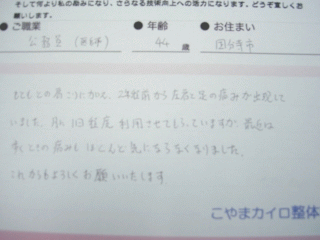 そして何より私の励みになり、さらなる技術向上への活力になります。どうぞ宜しくお
願いします。
●ご職業 ●年齢 ●お住まい
公務員 歳 国分寺市
もともとの肩こりに加え、2年程前から左肩と足の痛みが出現して
いました。月に1回程度利用させてもらっていますが、最近は
その痛みもほとんど気にならなくなりました。
これからもよろしくお願いいたします
こやまカイロ整体